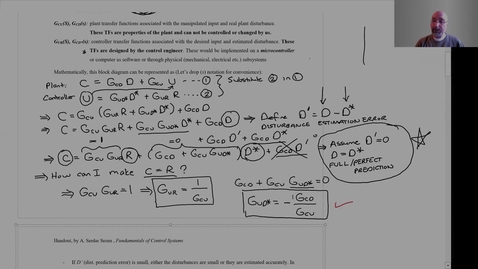 G_CU(S), G_CD(S): plant transfer functions associated with the manipulated input and real plant disturbance.
These TFs are properties of the plant and can not be controlled or changed by us.
G_UR(S), G_UD*(S): controller transfer functions associated with the desired input and estimated disturbance. These
TFs are designed by the control engineer. These would be implemented on a microcontroller
or computer as software or through physical (mechanical, electrical etc.) subsystems
Mathematically, this block diagram can be represented as (Let's drop (s) notation for convenience):
Plant: C = G_CD D + G_CU U ---- ① } Substitute ② in ①
Controller U = G_UD* D* + G_UR R ---- ②
⇒ C = G_CU (G_UR R + G_UD* D*) + G_CD D
⇒ C = G_CU G_UR R + G_CU G_UD* D* + G_CD D ⇒ Define D' = D - D*
DISTURBANCE ESTIMATION ERROR
=1 =0 + G_CD D' + G_CD D*
⇒ C = G_CU G_UR R + (G_CD + G_CU G_UD*) D* + G_CD D' 0
⇒ Assume D' = 0
D = D*
FULL/PERFECT
PREDICTION
⇒ How can I make C = R ?
⇒ G_CU G_UR = 1 ⇒ G_UR = 1/G_CU
G_CD + G_CU G_UD* = 0
G_UD* = -G_CD/G_CU
Handout, by A. Serdar Sezen , Fundamentals of Control Systems
If D' (dist. prediction error) is small, either the disturbances are small or they are estimated accurately. In